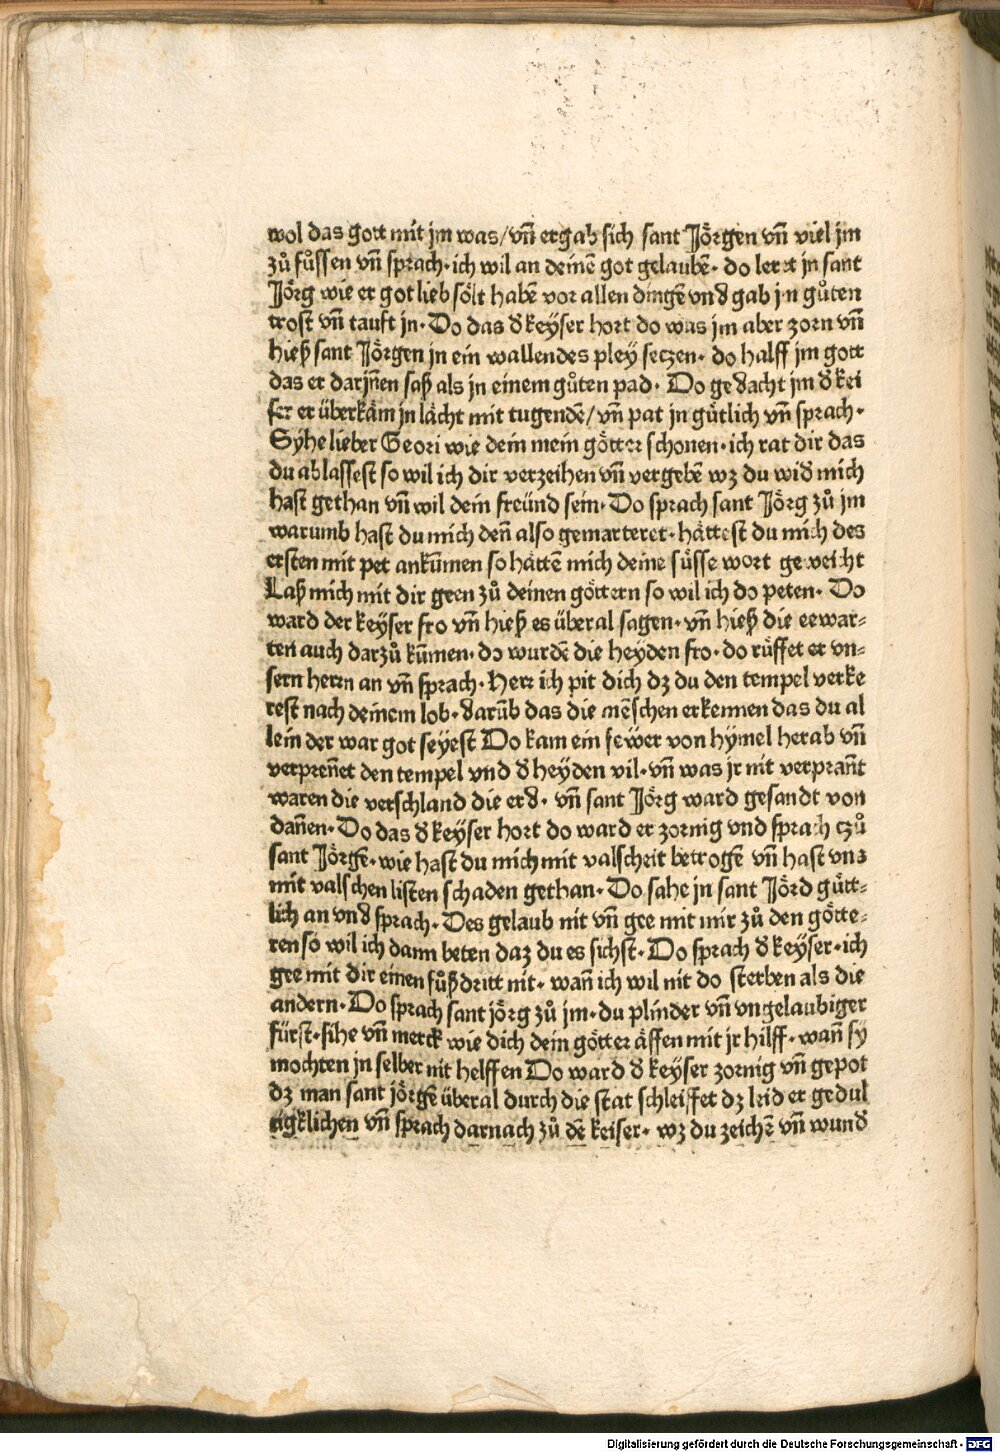 wol das gott mit jm was/vñ ergab sich sant Jörgen vñ viel jm
zů füssen vñ sprach·ich wil an deinē got gelaubē· do leret jn sant
Jörg wie er got lieb sölt habē vor allen dingē vnd gab jn gůten
trost vñ tauft jn·Do das d keyser hort do was jm aber zorn vñ
hieß sant Jörgen jn ein wallendes pley seczen· do halff jm gott
das er darjñen saß als jn einem gůten pad· Do gedacht jm d kei
ser er überkäm jn lächt mit tugendē/vñ pat jn gütlich vñ sprach·
Syhe lieber Geori wie dein mein götter schonen·ich rat dir das
du ablassest so wil ich dir verzeihen vñ vergebē wz du wid mich
hast gethan vñ wil dein freünd sein·Do sprach sant Jörg zů jm
warumb hast du mich deñ also gemarteret·hättest du mich des
ersten mit pet ankūmen so hättē mich deine süsse wort geweicht
Laß mich mit dir geen zů deinen göttern so wil ich do peten· Do
ward der keyser fro vñ hieß es überal sagen· vñ hieß die eewar=
ten auch darzů kūmen·do wurdē die heyden fro·do rüffet er vn=
sern herrn an vñ sprach·Herr ich pit dich dz du den tempel verke
rest nach deinem lob·darūb das die mēschen erkennen das du al
lein der war got seyest Do kam ein fewer von hymel herab vñ
verpreñet den tempel vnd d heyden vil·vñ was jr nit verprañt
waren die verschland die erd· vñ sant Jörg ward gesandt von
dañen·Do das d keyser hort do ward er zornig vnd sprach czů
sant Jörgē·wie hast du mich mit valscheit betrogē vñ hast vns
mit valschen listen schaden gethan·Do sahe jn sant Jörd gütt=
lich an vnd sprach·Des gelaub nit vñ gee mit mir zů den götte=
ren so wil ich dann beten daz du es sichst·Do sprach d keyser·ich
gee mit dir einen fůßdritt nit·wañ ich wil nit do sterben als die
andern·Do sprach sant jörg zů jm·du plinder vñ vngelaubiger
fürst·sihe vñ merck wie dich dein götter äffen mit jr hilff·wañ sy
mochten jn selber nit helffen Do ward d keyser zornig vñ gepot
dz man sant jörgē überal durch die stat schleiffet dz leid er gedul
tigklichen vñ sprach darnach zů dē keiser· wz du zeichē vñ wund
Digitalisierung gefördert durch die Deutsche Forschungsgemeinschaft - DFG